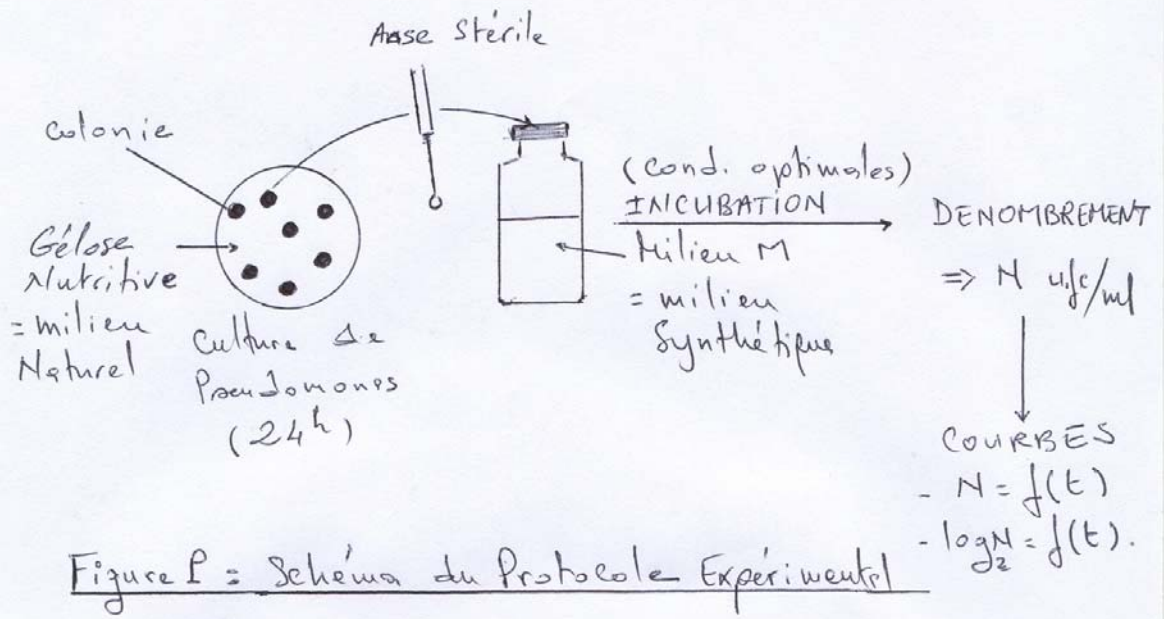 Anse Stérile
Colonie
Gélose
Nutritive
= milieu
Naturel
Culture de
Pseudomonas
(24h)
(Cond. optimales)
INCUBATION
Milieu M
= milieu
Synthétique
DENOMBREMENT
=> N ufc/ml
COURBES
- N = f(t)
- log₂N = f(t).
Figure 1 : Schéma du Protocole Expérimental